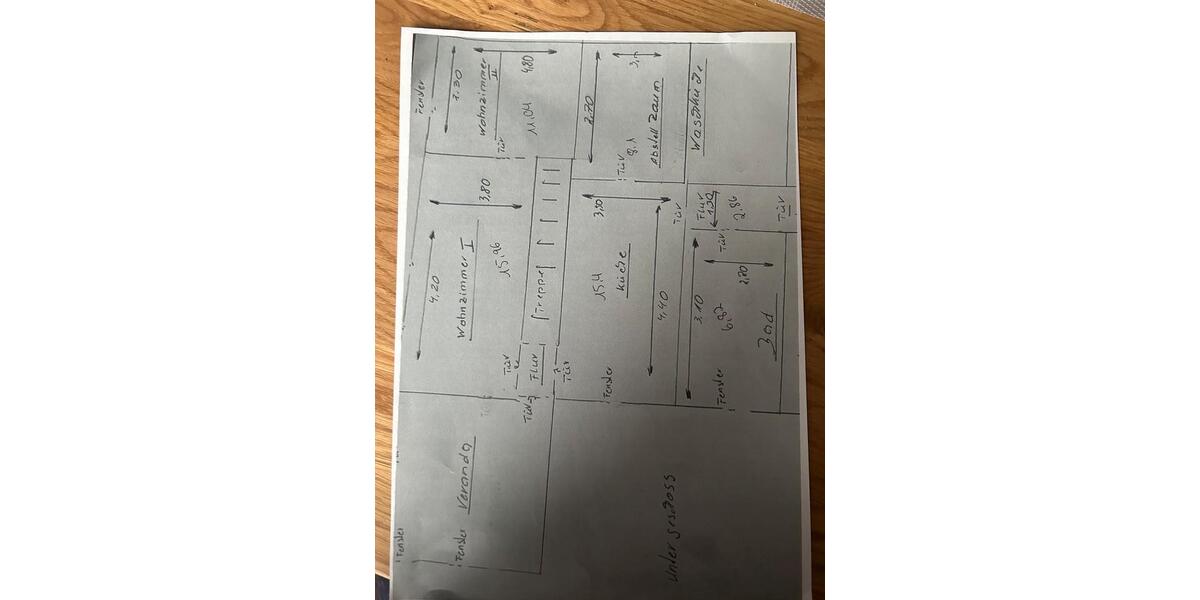 Fenster
2.30
Wohnzimmer
II
4,80
11,04
Tür
2.70
Abstell Raum
8,1
Tür
Waschküche
4,20
Wohnzimmer I
3,80
15,96
Treppe
3,50
Küche
15,4
4,40
Tür
Flur
1,30
2,86
Tür
Tür
3,10
2,20
Bad
Fenster
Fenster
Tür
Flur
Tür
Tür
Veranda
Fenster
Fenster
Untergeschoss